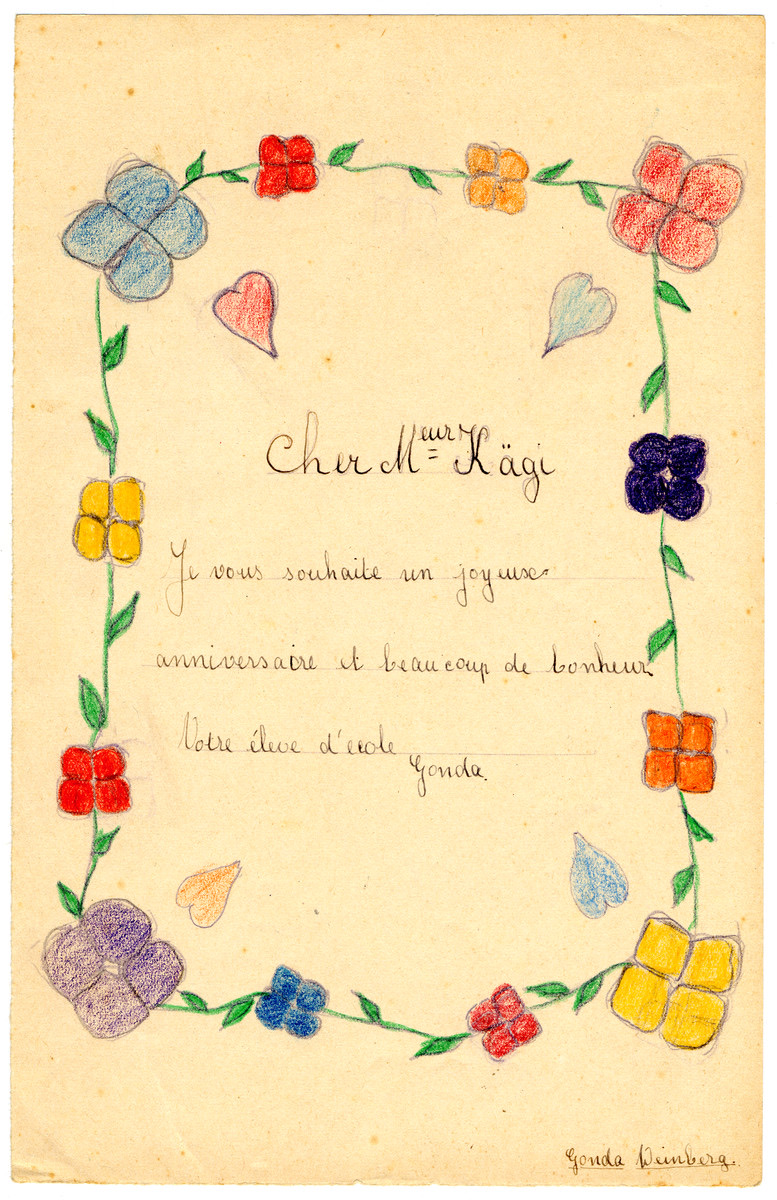 Cher Meur Kägi
Je vous souhaite un joyeuse
anniversaire et beaucoup de bonheur
Votre éleve d'ecole
Gonda.
Gonda Weinberg.